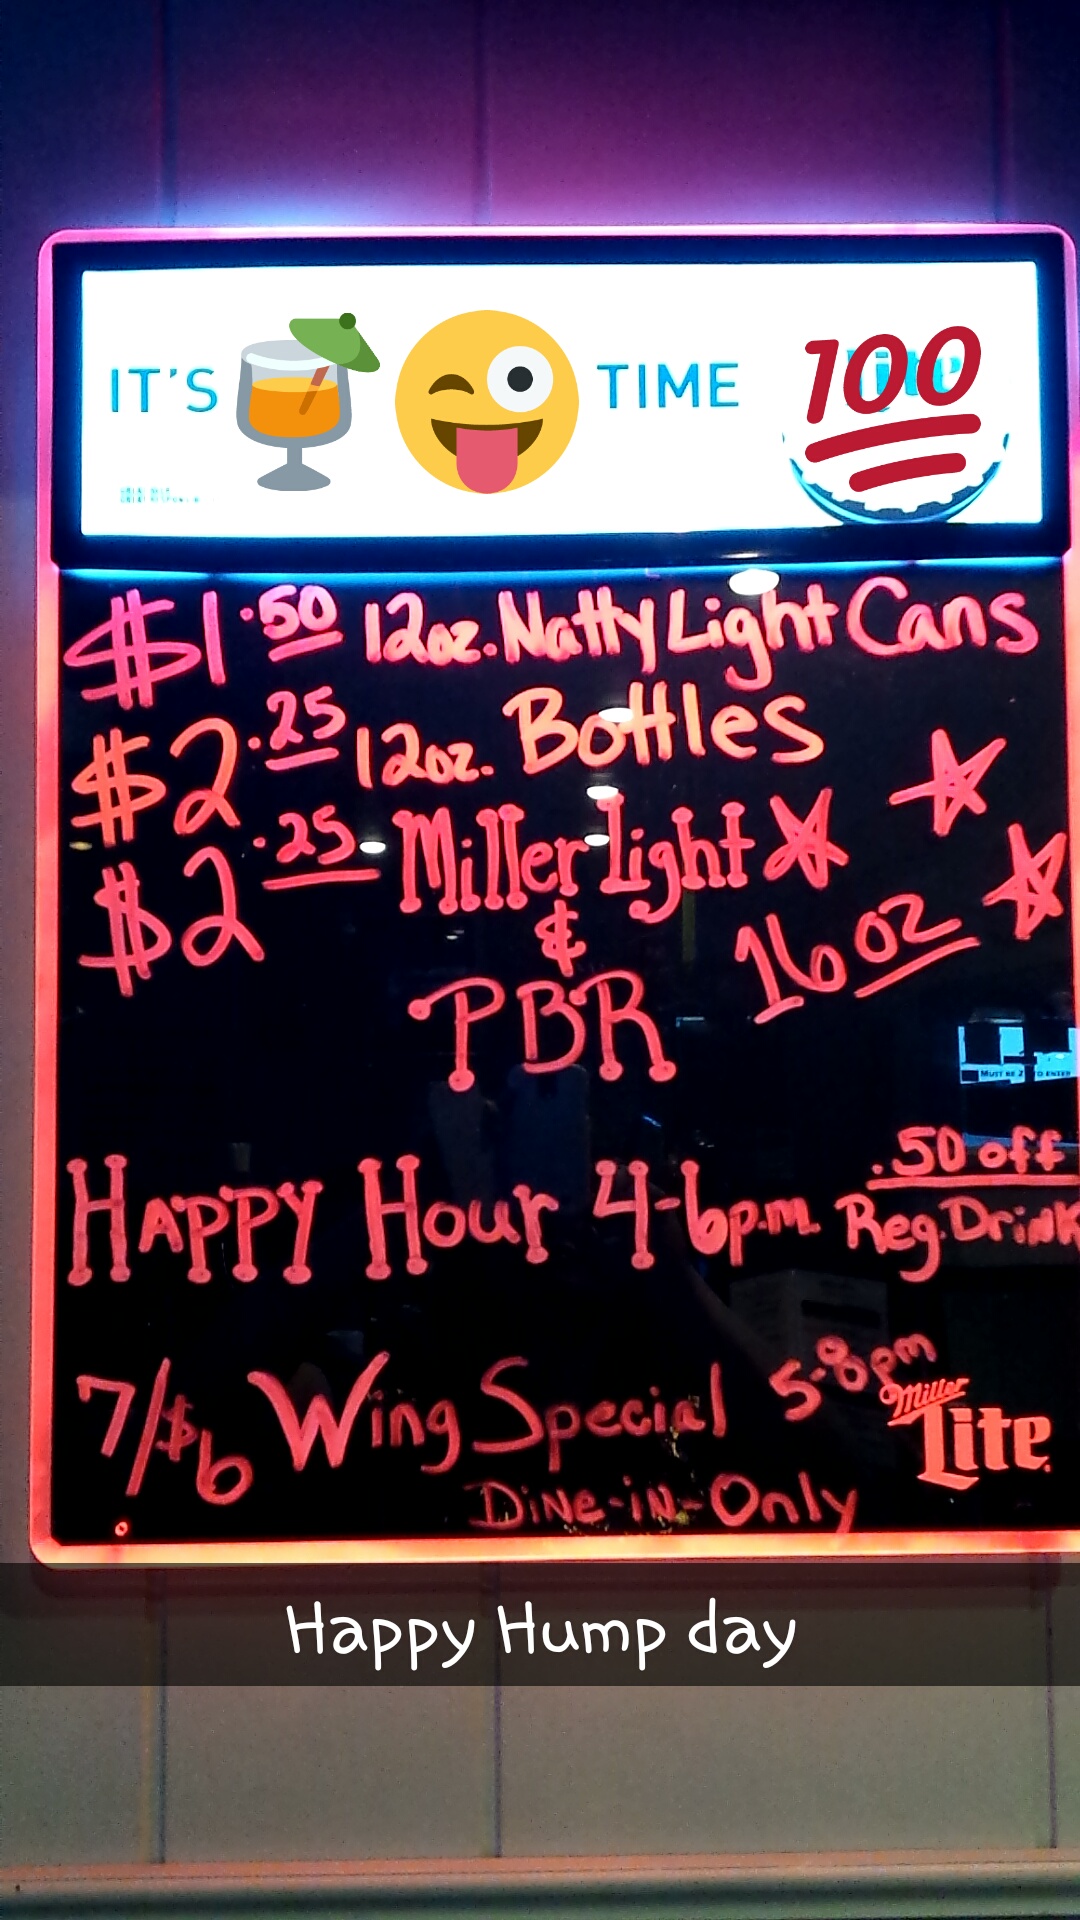 IT'S TIME
$1.50 12oz. Natty Light Cans
$2.25 12oz. Bottles
$2.25 Miller Light
&
PBR 16 oz
MUST BE 2 TO ENTER
.50 off
HAPPY Hour 4-6p.m. Reg. Drink
7/$6 Wing Special 5-8pm
Miller
Lite
Dine-in-Only
Happy Hump day